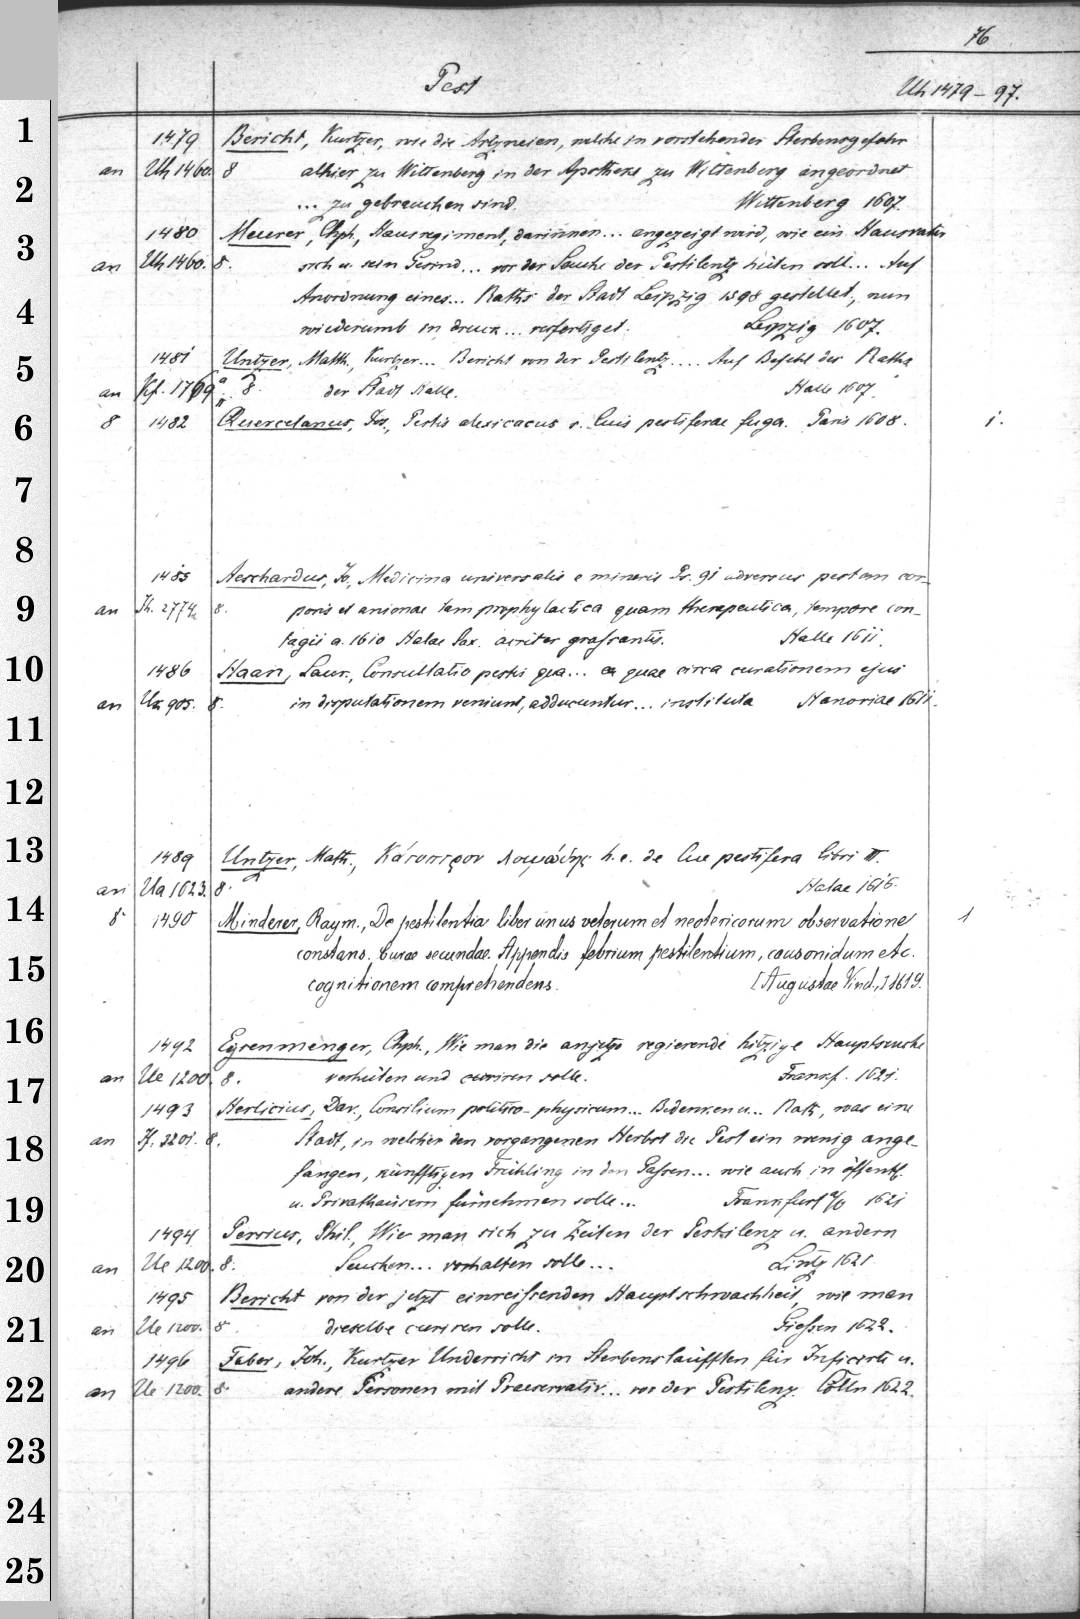 76
Pest
Uh 1479 – 97.
1
1479 Bericht, Kurtzer, wie die Artzneien, welche in vorstehender Sterbensgefahr
an Uh 1460. 8 alhier zu Wittenberg in der Apotheke zu Wittenberg angeordnet
2
... zu gebrauchen sind. Wittenberg 1607.
3
1480 Meurer, Chph., Hausregiment, darinnen... angezeigt wird, wie ein Hausvater
an Uh 1460. 8. sich u. sein Gesind... vor der Seuche der Pestilentz hüten soll... Auf
4
Anordnung eines... Raths der Stadt Leipzig 1598 gestellet, nun
wiederumb in druck... verfertiget. Leipzig 1607.
5
1481 Untzer, Matth., Kurtzer... Bericht von der Pestilentz.... Auf Befehl des Raths
an 8. der Stadt Halle. Halle 1607.
6
8 1482 Quercetanus, Jos., Pestis alexicacus s. luis pestiferae fuga. Paris 1608. 1.
7
8
1485 Aeschardus, Jo., Medicina universalis e mineris adversus pestem cor-
9
an 8. poris et animae tam prophylactica quam therapeutica, tempore con-
tagii a. 1610 Halae Sax. acriter grassantis. Halle 1611.
10
1486 Haan, Laur., Consultatio pestis qua... ea quae circa curationem ejus
11
an 905. 8. in disputationem veniunt, adducuntur... instituta Hanoviae 1611.
12
13
1489 Untzer, Matth., Κάτοπτρον λοιμώδης h. e. de lue pestifera libri III.
an Ua 1623. 8. Halae 1615.
14
8 1490 Minderer, Raym., De pestilentia liber unus veterum et neotericorum observatione 1
15
constans. Curae secundae. Appendix febrium pestilentium, causonidum etc.
cognitionem comprehendens. [Augustae Vind.,] 1619.
16
1492 Eyrenmenger, Chph., Wie man die anjetzo regierende hitzige Hauptseuche
17
an Ue 1200. 8. verhüten und curiren solle. Frankf. 1621.
1493 Herlicius, Dav., Consilium politico-physicum... Bedenken u... Rath, was eine
18
an 3201. 8. Stadt, in welcher den vorgangenen Herbst die Pest ein wenig ange-
fangen, künfftigen Frühling in den Gassen... wie auch in öffentl.
19
u. Privathäusern fürnehmen solle... Frankfurt a/O 1621
1494 Persius, Phil., Wie man sich zu Zeiten der Pestilenz u. andern
20
an Ue 1200. 8. Seuchen... verhalten solle... Lintz 1621.
1495 Bericht von der jetzt einreissenden Hauptschwachheit, wie man
21
an Ue 1200. 8. dieselbe curiren solle. Giessen 1622.
1496 Faber, Joh., Kurtzer Underricht in Sterbensläufften für Inficirte u.
22
an Ue 1200. 8. andere Personen mit Praeservativ... vor der Pestilenz. Cölln 1622.
23
24
25